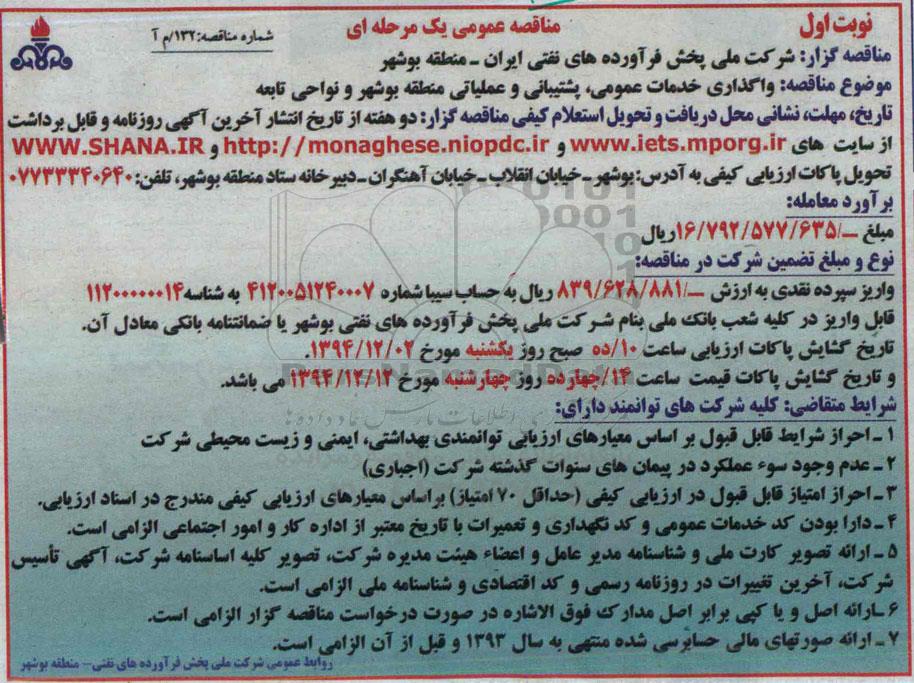 نوبت اول
مناقصه عمومی یک مرحله ای
شماره مناقصه: ۱۳۲/م آ
مناقصه گزار: شرکت ملی پخش فرآورده های نفتی ایران ـ منطقه بوشهر
موضوع مناقصه: واگذاری خدمات عمومی، پشتیبانی و عملیاتی منطقه بوشهر و نواحی تابعه
تاریخ، مهلت، نشانی محل دریافت و تحویل استعلام کیفی مناقصه گزار: دو هفته از تاریخ انتشار آخرین آگهی روزنامه و قابل برداشت
از سایت های www.iets.mporg.ir و http://monaghese.niopdc.ir و WWW.SHANA.IR
تحویل پاکات ارزیابی کیفی به آدرس: بوشهر ـ خیابان انقلاب ـ خیابان آهنگران ـ دبیرخانه ستاد منطقه بوشهر، تلفن: ۰۷۷۳۳۳۴۰۶۴۰
برآورد معامله:
مبلغ ـ/۱۶/۷۹۲/۵۷۷/۶۳۵ ریال
نوع و مبلغ تضمین شرکت در مناقصه:
واریز سپرده نقدی به ارزش ـ/۸۳۹/۶۲۸/۸۸۱ ریال به حساب سیبا شماره ۴۱۲۰۰۵۱۲۴۰۰۰۷ به شناسه ۱۱۲۰۰۰۰۰۰۱۴
قابل واریز در کلیه شعب بانک ملی بنام شرکت ملی پخش فرآورده های نفتی بوشهر یا ضمانتنامه بانکی معادل آن.
تاریخ گشایش پاکات ارزیابی ساعت ۱۰/ده صبح روز یکشنبه مورخ ۱۳۹۴/۱۲/۰۲.
و تاریخ گشایش پاکات قیمت ساعت ۱۴/چهارده روز چهارشنبه مورخ ۱۳۹۴/۱۲/۱۲ می باشد.
شرایط متقاضی: کلیه شرکت های توانمند دارای:
۱ ـ احراز شرایط قابل قبول بر اساس معیارهای ارزیابی توانمندی بهداشتی، ایمنی و زیست محیطی شرکت
۲ ـ عدم وجود سوء عملکرد در پیمان های سنوات گذشته شرکت (اجباری)
۳ ـ احراز امتیاز قابل قبول در ارزیابی کیفی (حداقل ۷۰ امتیاز) براساس معیارهای ارزیابی کیفی مندرج در اسناد ارزیابی.
۴ ـ دارا بودن کد خدمات عمومی و کد نگهداری و تعمیرات با تاریخ معتبر از اداره کار و امور اجتماعی الزامی است.
۵ ـ ارائه تصویر کارت ملی و شناسنامه مدیر عامل و اعضاء هیئت مدیره شرکت، تصویر کلیه اساسنامه شرکت، آگهی تأسیس
شرکت، آخرین تغییرات در روزنامه رسمی و کد اقتصادی و شناسنامه ملی الزامی است.
۶ ـ ارائه اصل و یا کپی برابر اصل مدارک فوق الاشاره در صورت درخواست مناقصه گزار الزامی است.
۷ ـ ارائه صورتهای مالی حسابرسی شده منتهی به سال ۱۳۹۳ و قبل از آن الزامی است.
روابط عمومی شرکت ملی پخش فرآورده های نفتی - منطقه بوشهر